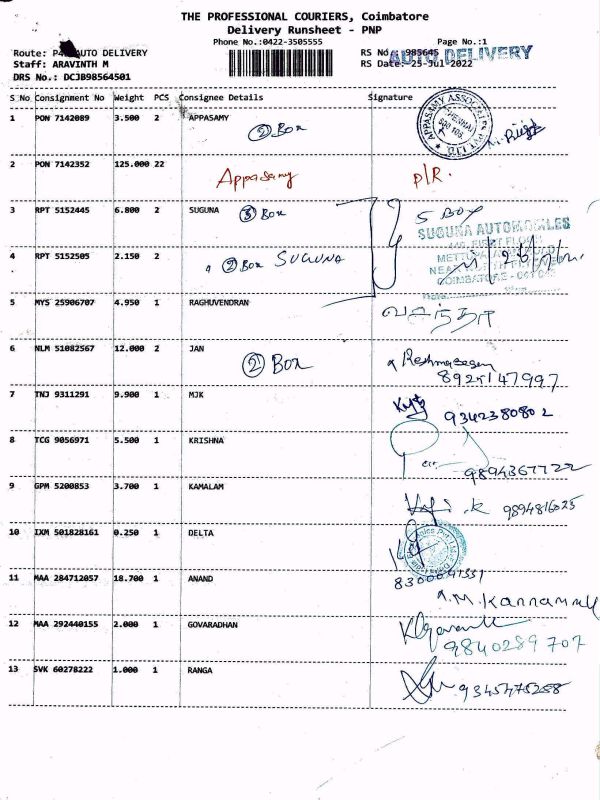 THE PROFESSIONAL COURIERS, Coimbatore
Delivery Runsheet - PNP
Phone No.:0422-3505555
Page No.:1
Route: AUTO DELIVERY
RS No.: 985645
AUTO DELIVERY
Staff: ARAVINTH M
RS Date: 25-Jul-2022
DRS No.: DCJB98564501
S No Consignment No Weight PCS Consignee Details Signature
1 PON 7142089 3.500 2 APPASAMY
② Box
APPASAMY ASSOCIATES PVT LTD
2 PON 7142352 125.000 22
Appasamy P/R.
3 RPT 5152445 6.800 2 SUGUNA ③ Box 5 Box
SUGUNA AUTOMOBILES
4 RPT 5152505 2.150 2
② Box SUGUNA
COIMBATORE
5 MYS 25906707 4.950 1 RAGHUVENDRAN
வசந்தா
6 NLM 51082567 12.000 2 JAN
② Box
8925147997
7 TNJ 9311291 9.900 1 MJK
9342380802
8 TCG 9056971 5.500 1 KRISHNA
9894367722
9 GPM 5200853 3.700 1 KAMALAM
9894816025
10 IXM 501828161 0.250 1 DELTA
11 MAA 284712057 18.700 1 ANAND
12 MAA 292440155 2.000 1 GOVARADHAN
9840289707
13 SVK 60278222 1.000 1 RANGA
9345475258